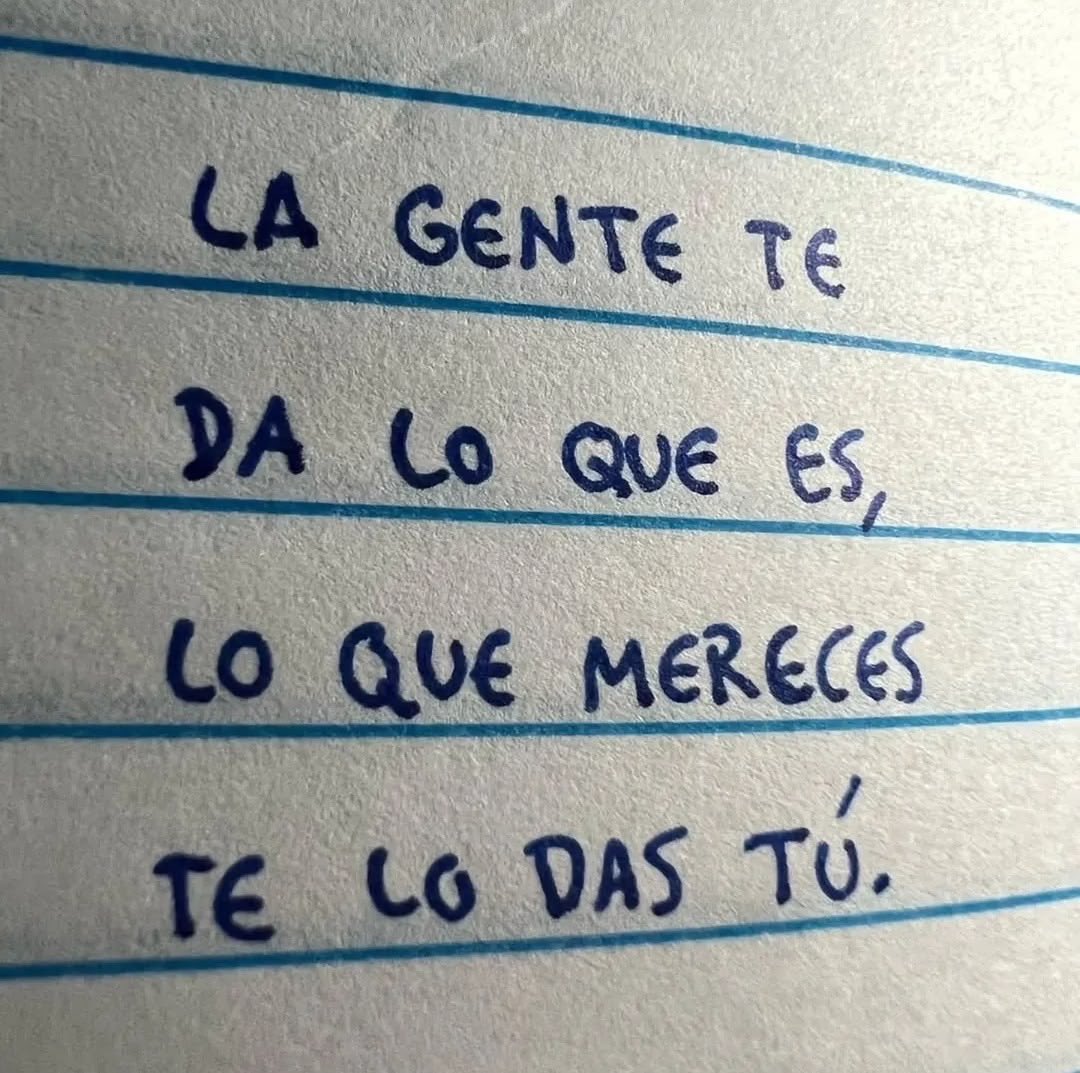 LA GENTE TE
DA LO QUE ES,
LO QUE MERECES
TE LO DAS TÚ.